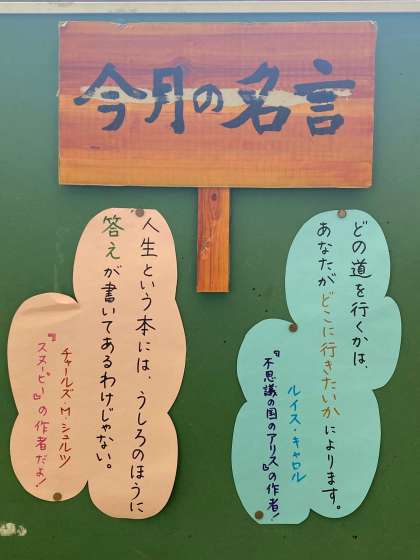 今月の名言
どの道を行くかは、
あなたがどこに行きたいかによります。
ルイス・キャロル
『不思議の国のアリス』の作者!
人生という本には、うしろのほうに
答えが書いてあるわけじゃない。
チャールズ・M・シュルツ
『スヌーピー』の作者だよ!